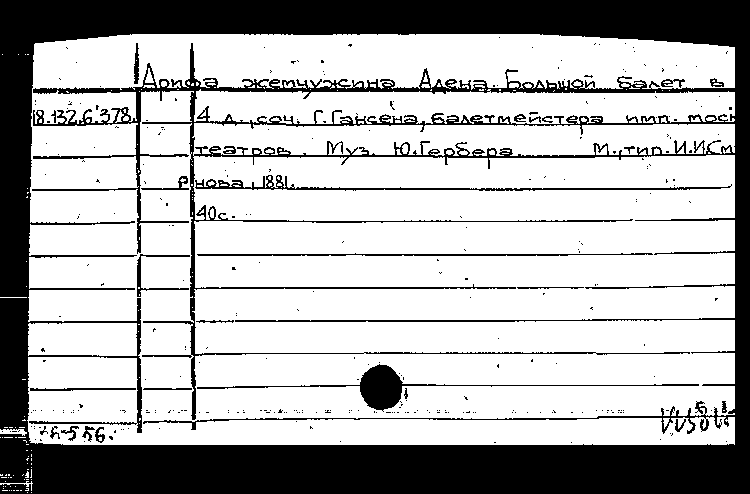 Арифа жемчужина Адена. Большой балет в
18.132.6.378. 4 д., соч. Г.Гансена, балетмейстера имп. моск
театров. Муз. Ю.Гербера. М., тип. И.И.См
рнова, 1881.
40с.